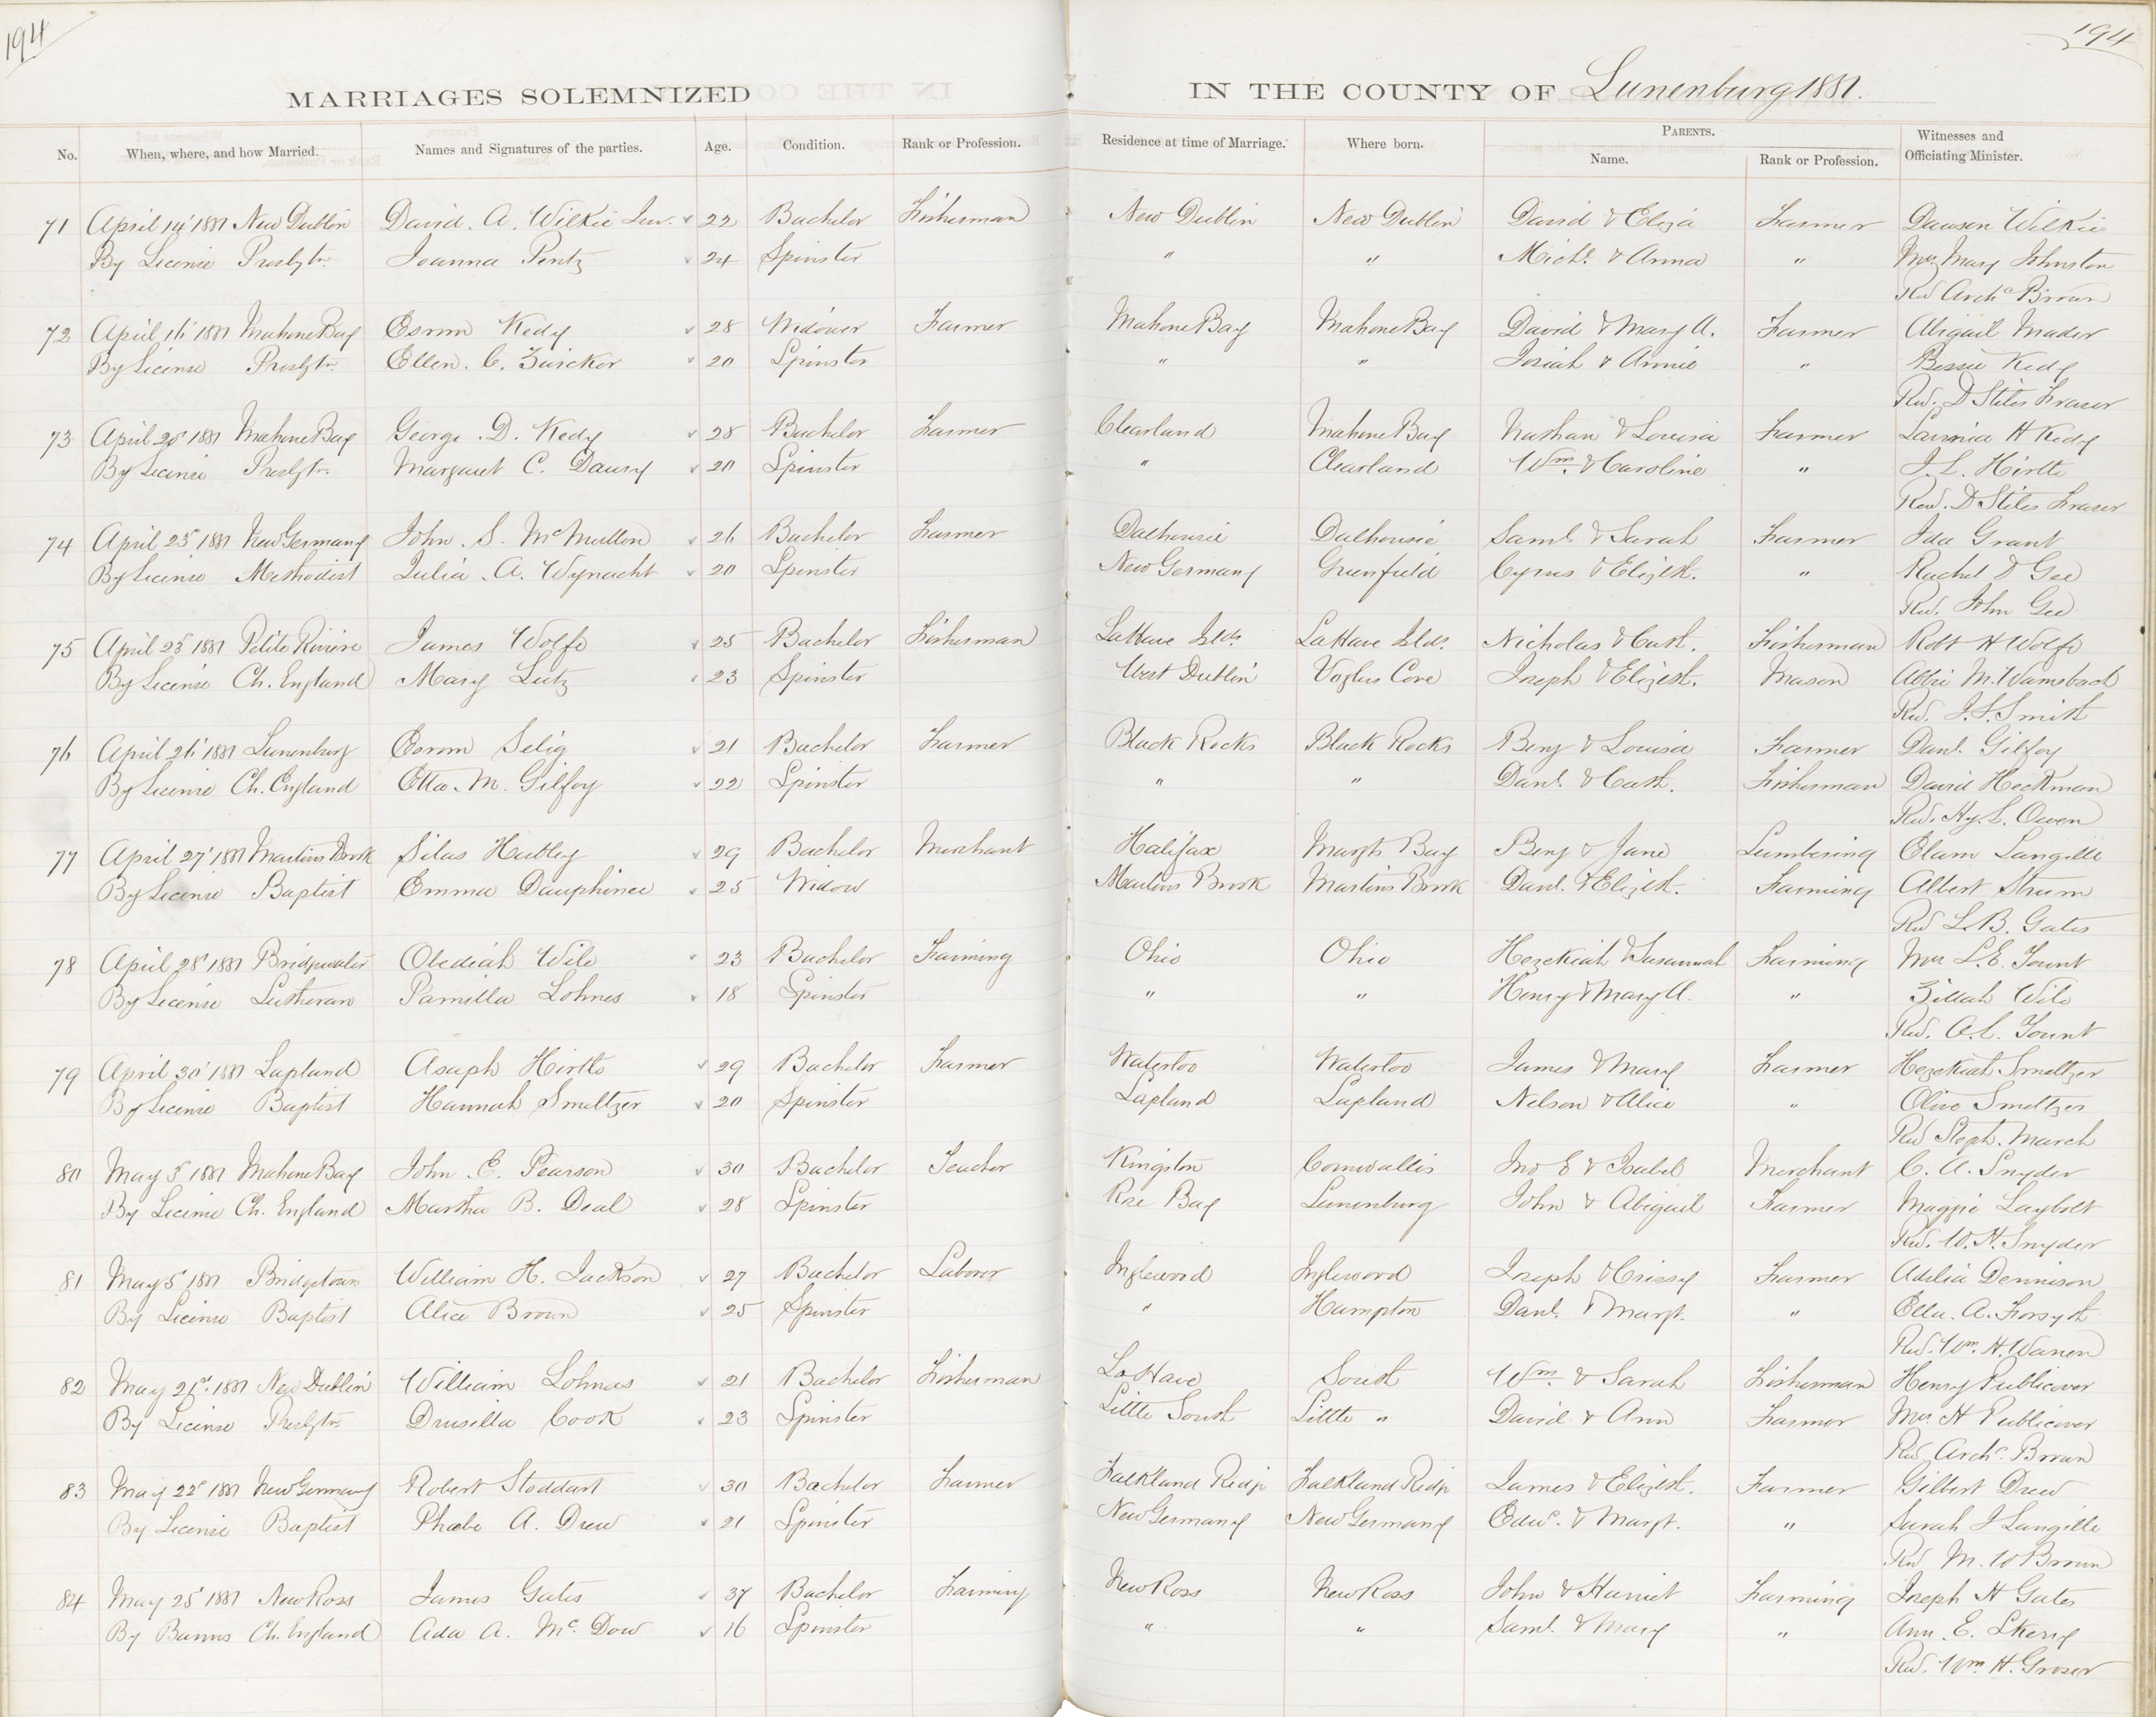 194
194
MARRIAGES SOLEMNIZED IN THE COUNTY OF Lunenburg 1881.
No. When, where, and how Married. Names and Signatures of the parties. Age. Condition. Rank or Profession. Residence at time of Marriage. Where born. PARENTS. Name. Rank or Profession. Witnesses and Officiating Minister.
71 April 14' 1881 New Dublin David. A. Wilkie Jun. 22 Bachelor Fisherman New Dublin New Dublin David & Eliza Farmer Dawson Wilkie
By License Presbytn. Joanna Pentz 24 Spinster " " Michl. & Anna " Mrs Mary Johnston
Rev Archd Brown
72 April 16' 1881 Mahone Bay Esrom Kedy 28 Widower Farmer Mahone Bay Mahone Bay David & Mary A. Farmer Abigail Mader
By License Presbytn. Ellen. C. Zwicker 20 Spinster " " Josiah & Annie " Bessie Kedy
Rev. D Stiles Fraser
73 April 20' 1881 Mahone Bay George. D. Kedy 28 Bachelor Farmer Clearland Mahone Bay Nathan & Louisa Farmer H Kedy
By License Presbytn. Margaret C. Daury 20 Spinster " Clearland Wm. & Caroline " J. L. Hirtle
Rev. D Stiles Fraser
74 April 23' 1881 New Germany John. S. McMullen 26 Bachelor Farmer Dalhousie Dalhousie Saml. & Sarah Farmer Ida Grant
By License Methodist Julia. A. Wynacht 20 Spinster New Germany Greenfield Cyrus & Elizth. " Rachel D Gee
Rev. John Gee
75 April 25' 1881 Petite Riviere James Wolfe 25 Bachelor Fisherman LaHave Islds. LaHave Islds. Nicholas & Cath. Fisherman Robt H Wolfe
By License Ch. England Mary Lutz 23 Spinster West Dublin Voglers Cove Joseph & Elizth. Mason Abbie M. Wamboch
Rev. J. S. Smith
76 April 26' 1881 Lunenburg Esrom Selig 21 Bachelor Farmer Black Rocks Black Rocks Benj & Louisa Farmer Danl. Gilfoy
By License Ch. England Etta. M. Gilfoy 22 Spinster " " Danl. & Cath. Fisherman David Heckman
Rev. Hy. L. Owen
77 April 27' 1881 Martins Brook Silas Hubley 29 Bachelor Merchant Halifax Margts Bay Benj & Jane Lumbering Elam Langille
By License Baptist Emma Dauphinee 25 Widow Martins Brook Martins Brook Danl. & Elizth. Farming Albert Strum
Rev L. B. Gates
78 April 28' 1881 Bridgewater Obediah Wile 23 Bachelor Farming Ohio Ohio Hezekiah & Susannah Farming Mrs L. E. Yount
By License Lutheran Pamilla Lohnes 18 Spinster " " Henry & Mary A. " Zillah Wile
Rev. A. L. Yount
79 April 30' 1881 Lapland Asaph Hirtle 29 Bachelor Farmer Waterloo Waterloo James & Mary Farmer Hezekiah Smeltzer
By License Baptist Hannah Smeltzer 20 Spinster Lapland Lapland Nelson & Alice " Olive Smeltzer
Rev Steph. March
80 May 3' 1881 Mahone Bay John. E. Pearson 30 Bachelor Teacher Kingston Cornwallis Jno E & Isabel Merchant C. A. Snyder
By License Ch. England Martha B. Deal 28 Spinster Rose Bay Lunenburg John & Abigail Farmer Maggie Laybolt
Rev. W. H. Snyder
81 May 5' 1881 Bridgetown William H. Jackson 27 Bachelor Laborer Inglewood Inglewood Joseph & Crissy Farmer Adelia Dennison
By License Baptist Alice Brown 25 Spinster " Hampton Danl. & Margt. " Ella. A. Forsyth
Rev. Wm. H. Warren
82 May 21st. 1881 New Dublin William Lohnes 21 Bachelor Fisherman LaHave South Wm. & Sarah Fisherman Henry Publicover
By License Presbytn. Drusilla Cook 23 Spinster Little South Little " David & Ann Farmer Mrs H Publicover
Rev Archd. Brown
83 May 22' 1881 New Germany Robert Stoddart 30 Bachelor Farmer Falkland Ridge Falkland Ridge James & Elizth. Farmer Gilbert Drew
By License Baptist Phoebe A. Drew 21 Spinster New Germany New Germany Edwd. & Margt. " Sarah J Langille
Rev M. W Brown
84 May 25' 1881 New Ross James Gates 37 Bachelor Farming New Ross New Ross John & Harriet Farming Joseph H Gates
By Banns Ch. England Ada A. Mc. Dow 16 Spinster " " Saml. & Mary " Ann. E. Skerry
Rev. Wm H. Groser